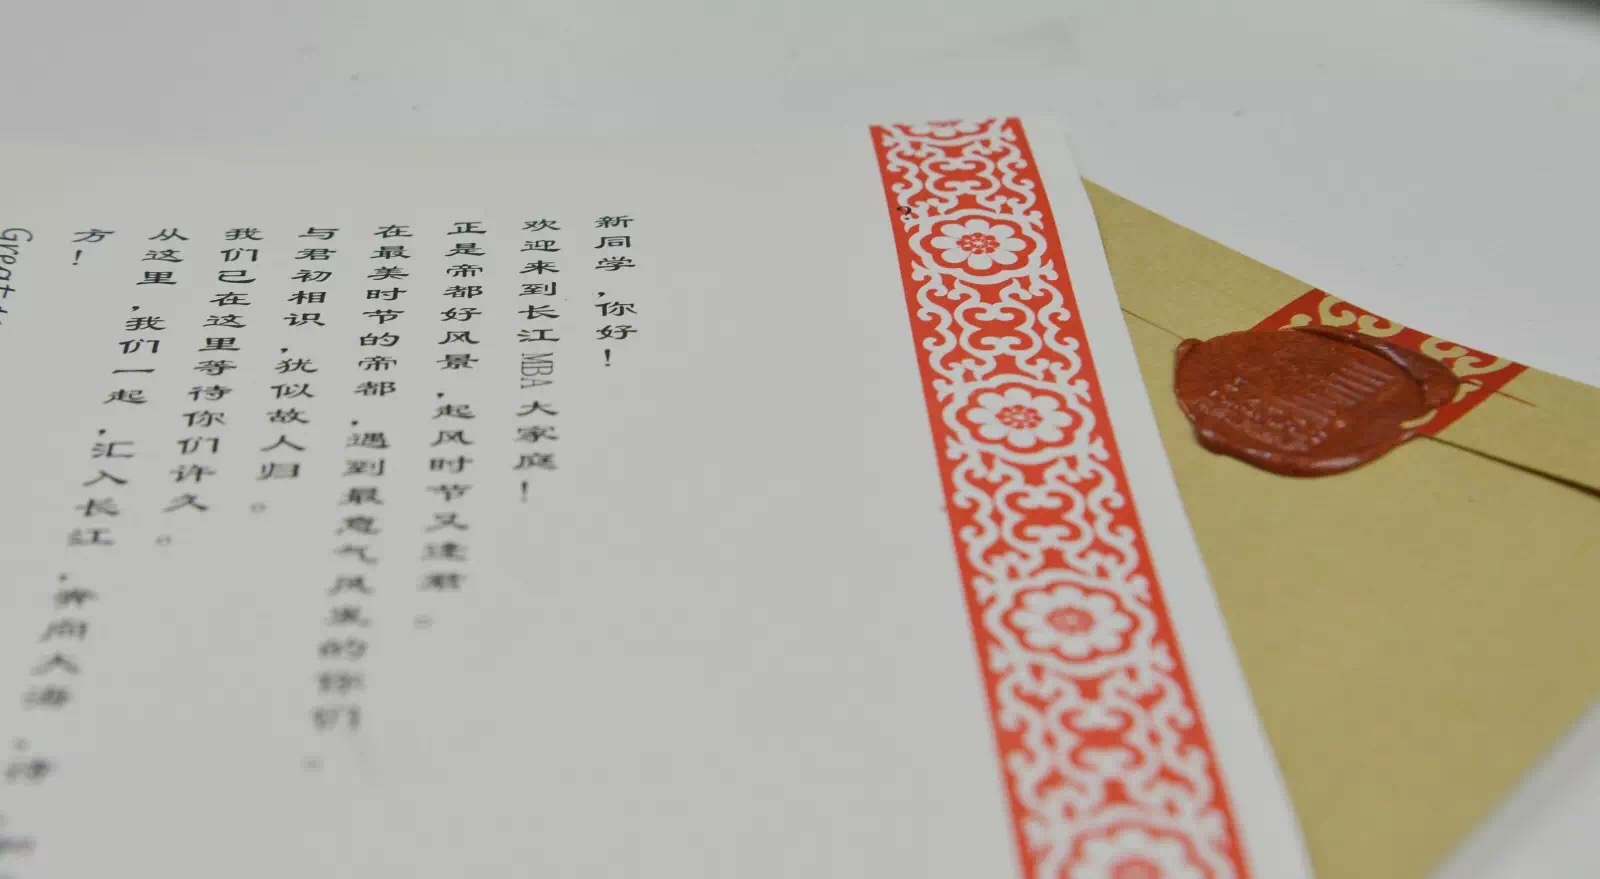 新同学，你好！
欢迎来到长江MBA大家庭！
正是帝都好风景，起风时节又逢君。
在最美时节的帝都，遇到最意气风发的你们。
与君初相识，犹似故人归。
我们已在这里等待你们许久。
从这里，我们一起，汇入长江，奔向大海。诗
方！
Great
?